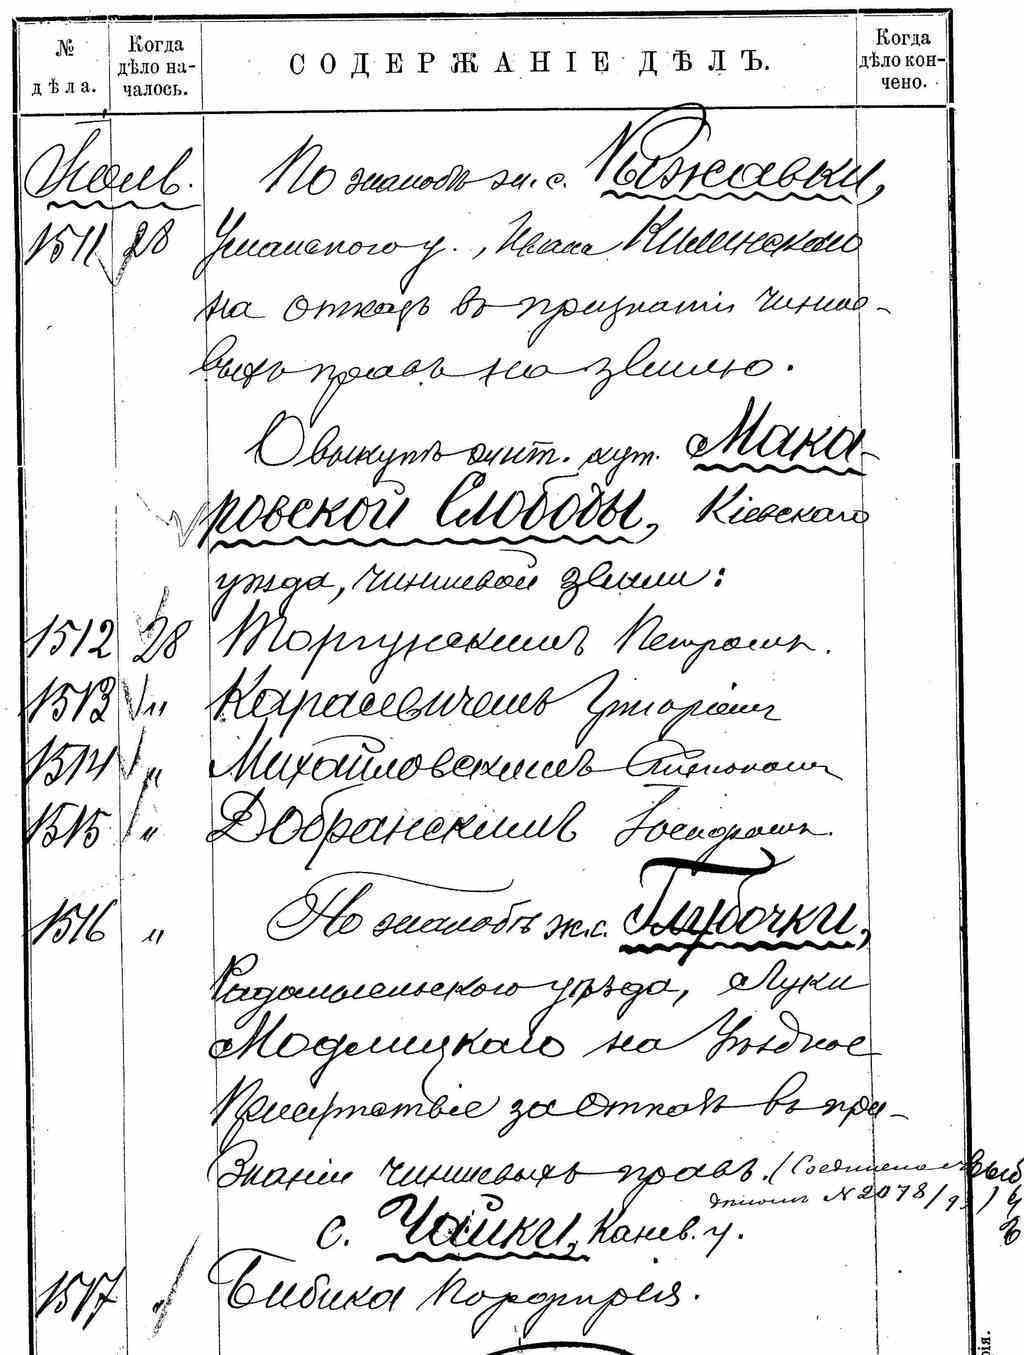 № дѣла.
Когда дѣло началось.
СОДЕРЖАНІЕ ДѢЛЪ.
Когда дѣло кончено.
По жалобѣ ж. с. Ряжавки,
1511 28 Уманского у., Ивана Килинскаго
на отказъ въ признаніи чинше-
выхъ правъ на землю.
О выкупѣ жит. хут. Мака-
ровской Слободы, Кіевскаго
уѣзда, чиншевой земли:
1512 28 Моргунскимъ Петромъ.
1513 " Карасевичемъ Григоріемъ
1514 " Михайловскимъ Антономъ
1515 " Добранскимъ
1516 " По жалобѣ ж. с. Глубочки,
Радомысльского уѣзда, Луки
Модлицкаго на Уѣздное
Присутствіе за отказъ въ при-
знаніи чиншевыхъ правъ. (Соединено съ
дѣломъ № 2078/93)
с. Чайки, Канев. у.
1517 " Бибика Порфирія.
рія.